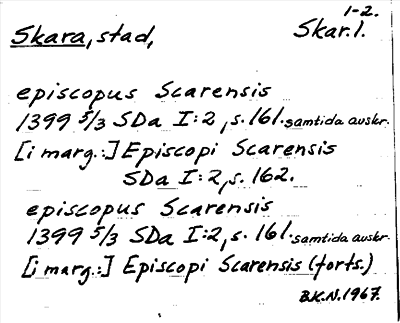 1-2.
Skara, stad, Skar.1.
episcopus Scarensis
1399 5/3 SDa I:2, s. 161. samtida avskr.
[i marg.:] Episcopi Scarensis
SDa I:2, s. 162.
episcopus Scarensis
1399 5/3 SDa I:2, s. 161. samtida avskr.
[i marg.:] Episcopi Scarensis (forts.)
B.K.N. 1967.